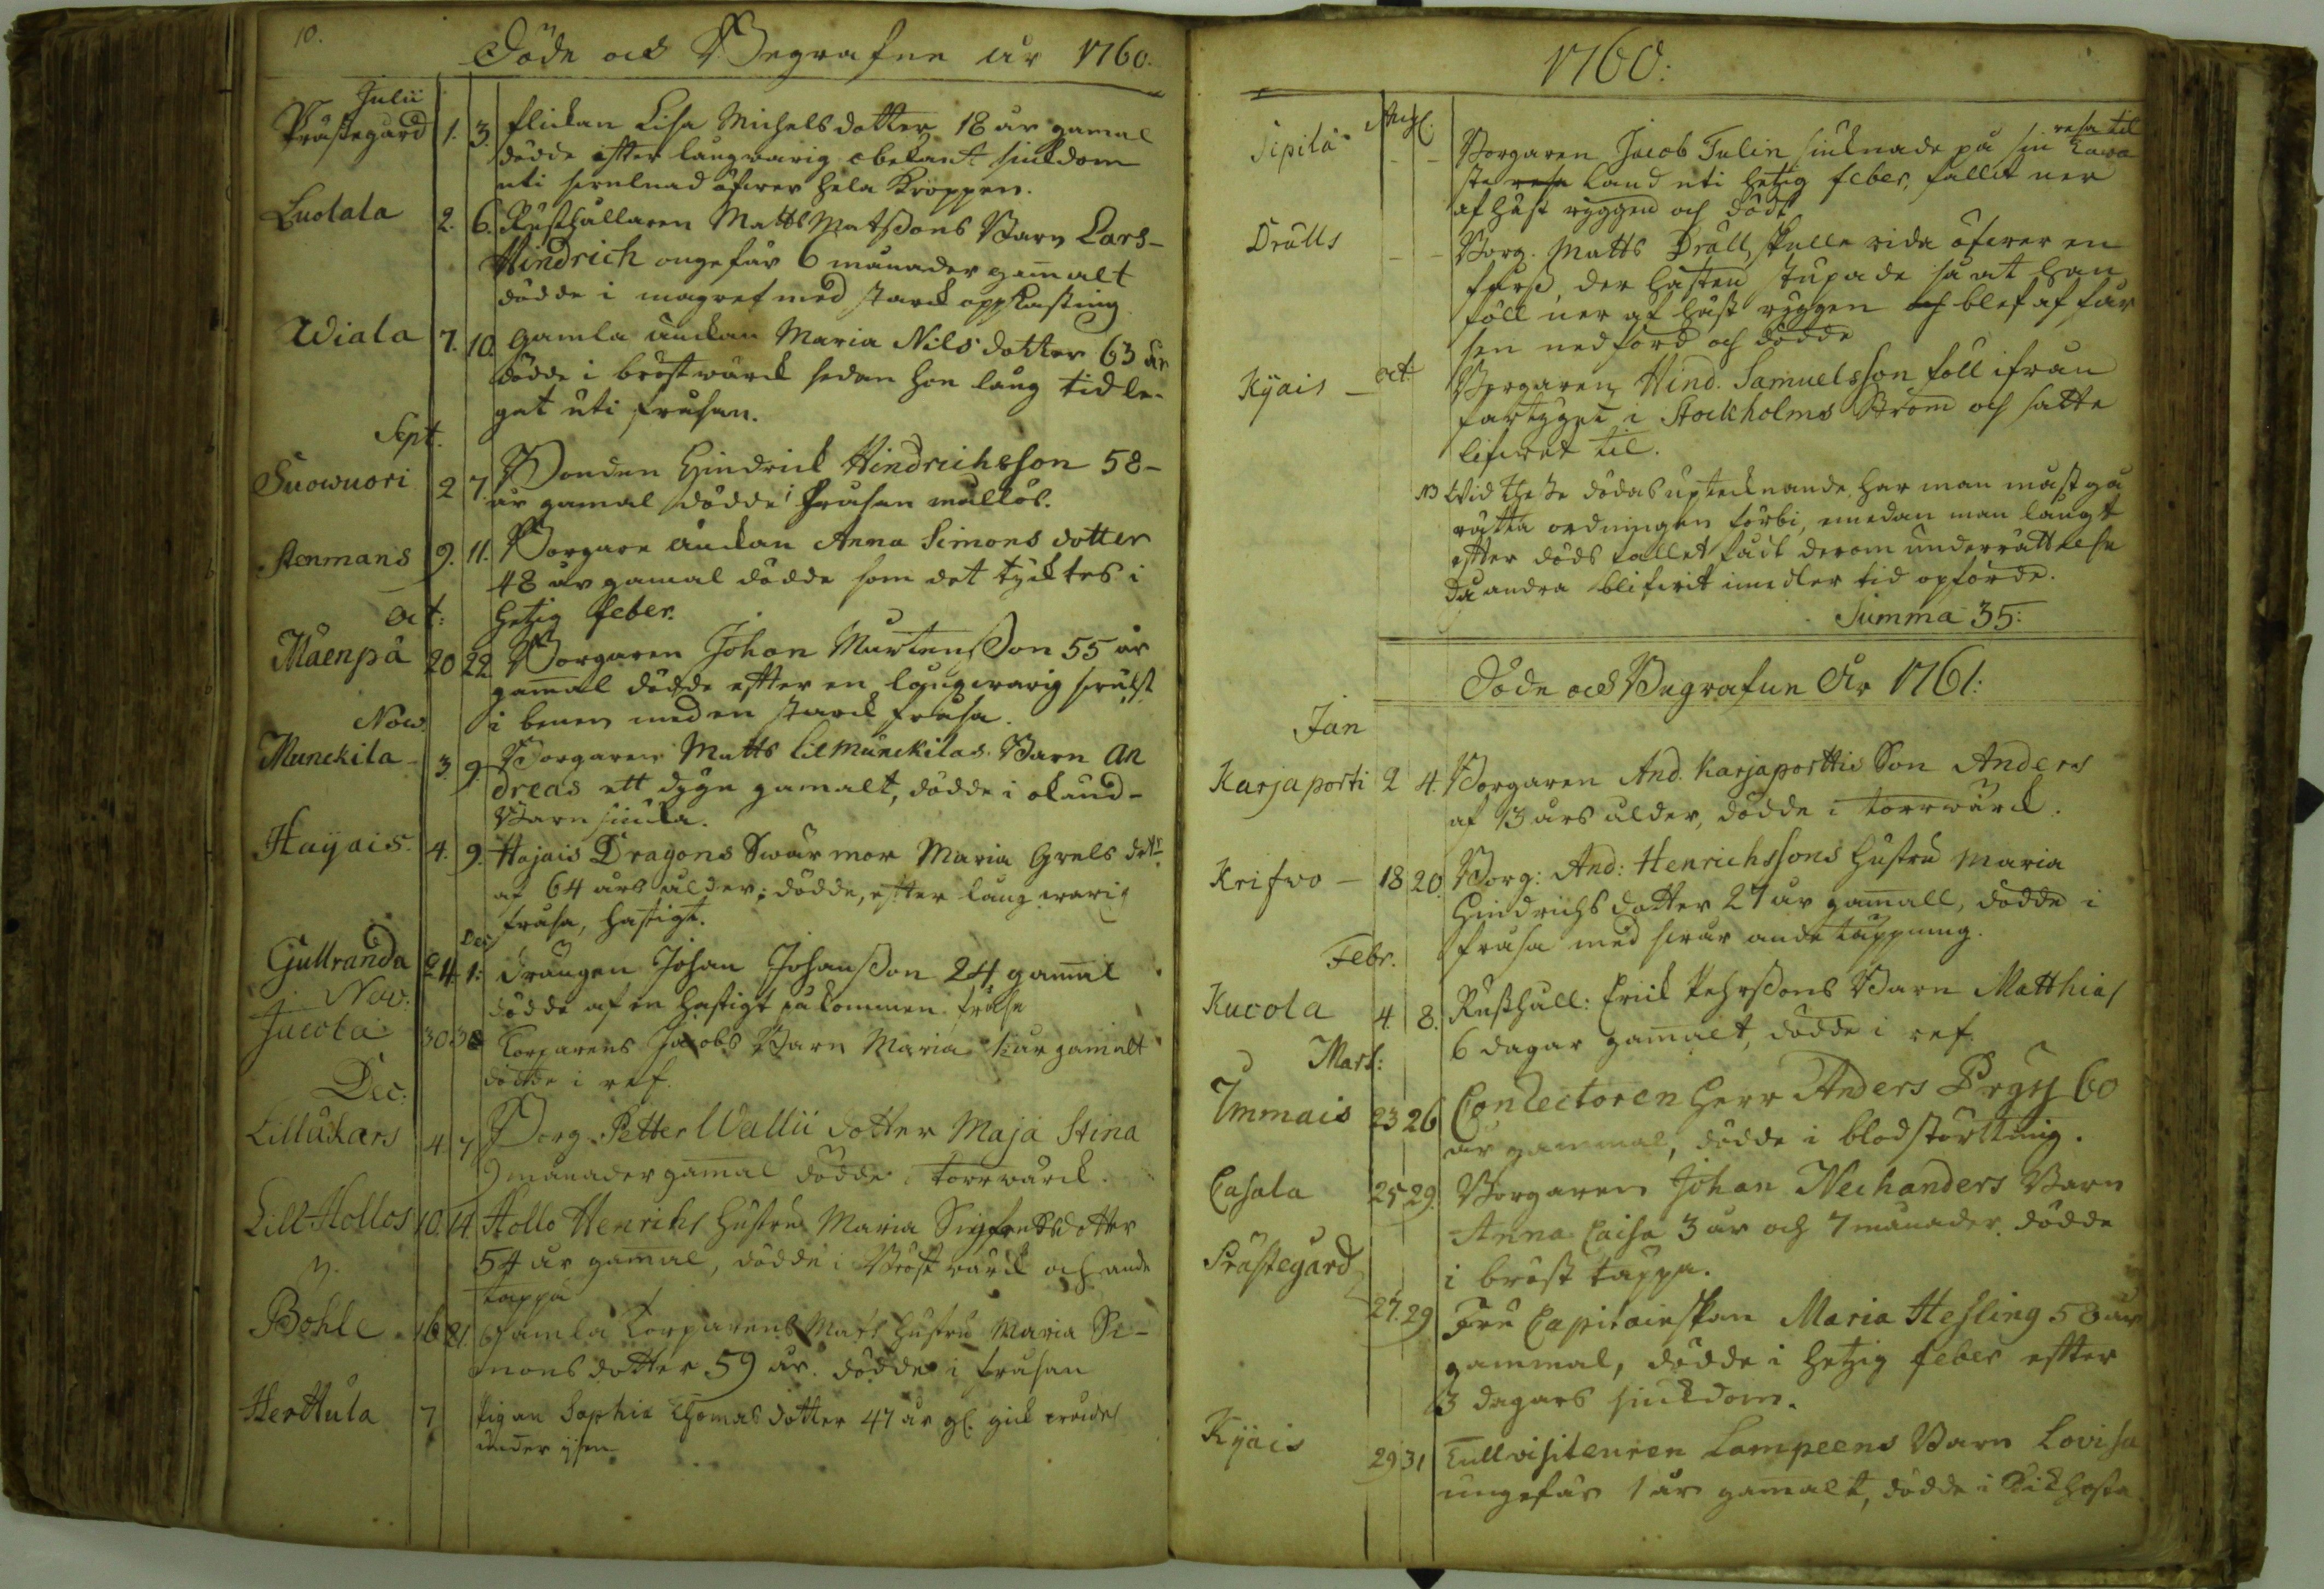 10.
Döde och Begrafne År 1760.
Julii
Prästegård 1. 3. flickan Lisa Michels dotter 18 år gamal
dödde efter långwarig obekant siukdom
uti swulnad öfwer hela Kroppen.
Luolala 2. 6. Rusthållaren Matts Matssons Barn Lars-
Hindrich ongefär 6 månader gamalt
dödde i magref med starck oppkastning
Wiala 7. 10. Gamla änckan Maria Nils dotter 63 år
dödde i bröstwärck sedan hon lång tid le-
gat uti frusan.
Sept.
Suowuori 2 7. Bonden Hindrick Hindrichsson 58-
år gamal dödde i frusan mållös.
Stenmans 9. 11. Borgare änckan Anna Simons dotter
48 år gamal dödde som det tycktes i
hetzig feber.
Oct:
Mäenpä 20 22. Borgaren Johan Murtensson 55 år
gamal dödde efter en långwarig swulst
i benen med en starck frusa.
Now.
Munckila 3. 9. Borgaren Matts lilMunckilas Barn An
dreas ett dygn gamalt, dödde i okänd-
Barn siuka.
Hayais. 4. 9. Hajais Dragons Swärmor Maria Grels dotr
af 64 års ålder, dödde, efter långwarig
frusa, hastigt.
Dec
Gullranda 24 1: Drängen Johan Johansson 24 gamal
dödde af en hastigt påkommen frusa
Nov:
Jucola 30. Torparens Jacobs Barn Maria år gamalt
dödde i ref.
Dec:
Lillåkars 4. 7 Borg. Petter Wallii dotter Maja Stina
9 månader gamal dödde i torrwärck.
Lill Hollos 10. 14. Hollo Henrichs hustru Maria Sigfredsdotter
54 år gamal, dödde i Bröstwärck och ande
täppa
Bohle 16 21. Gamla Torparens Mats hustru Maria Si-
monsdotter 59 år. dödde i frusan
Herttula 7 Pigan Sophia Thomas dotter 47 år gl. gick
under ijsen
1760:
Augl.
Sipilä - - Borgaren Jacob Tulin siuknade på sin resa til Tawa
ste resa land uti hetzig feber, fallit ner
af häst ryggen och dödt
Drälls - - Borg. Matts Dräll, skulle rida öfwer en
fors, der hästen stupade så at han
föll ner af häst ryggen och blef af får
sen nedförd och dödde
Kyäis - Oct. Borgaren Hind. Samuelsson föll ifrån
fartyget i Stockholms Ström och satte
lifwet til.
NB Wid thesse dödas uptecknande har man måst gå
rätta ordningen förbi, emedan man långt
efter döds fallet fådt derom underrättelse
Då andra blifwit imedler tid opförde.
Summa 35:
Döde och Begrafne År 1761:
Jan
Karjaporti 2 4. Borgaren And. Karjaporttis Son Anders
af 13 års ålder, dödde i torrwärck.
Krifwo - 18 20. Borg: And: Henrichssons hustru Maria
Hindrichs dotter 27 år gamall, dödde i
frusa med swår andetäppning.
Febr.
Kucola 4. 8. Rusthåll: Erick Pehrssons Barn Matthias
6 dagar gamalt, dödde i ref
Mart:
Immais 23 26 Conrectoren Herr Anders Prytz 60
år gammal, dödde i blodstörttning.
Casala 25 29. Borgaren Johan Nechanders Barn
Anna Caisa 3 år och 7 månader. dödde
i brösttäppa.
Prästegård
27. 29 Fru Capitainskan Maria Hesling 58 år
gammal, dödde i hetzig feber efter
3 dagars siuckdom.
Kyäis 29 31 Tullvisiteuren Lampeens Barn Lovisa
ungefär 1 år gamalt, dödde i Kikhosta